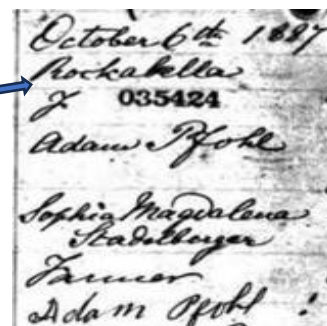 October 6th 1887
Rockabella
F 035424
Adam Pfohl
Sophia Magdalena
Stadelberger
Farmer
Adam Pfohl